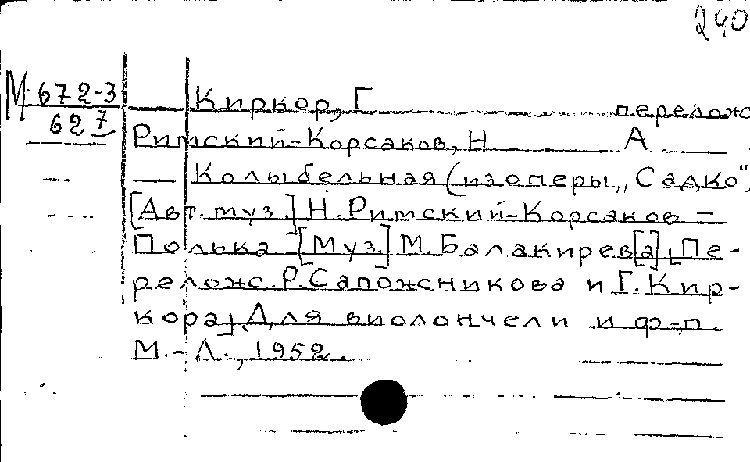 240
М 672-3
62 7
Киркор, Г перелож
Римский-Корсаков, Н А
Колыбельная (из оперы „Садко").
[Авт. муз.] Н. Римский-Корсаков –
Полька [Муз.] М. Балакирев[а], [Пе-
релож. Р. Сапожникова и Г. Кир-
кора]. Для виолончели и ф-п.
М.-Л., 1952.